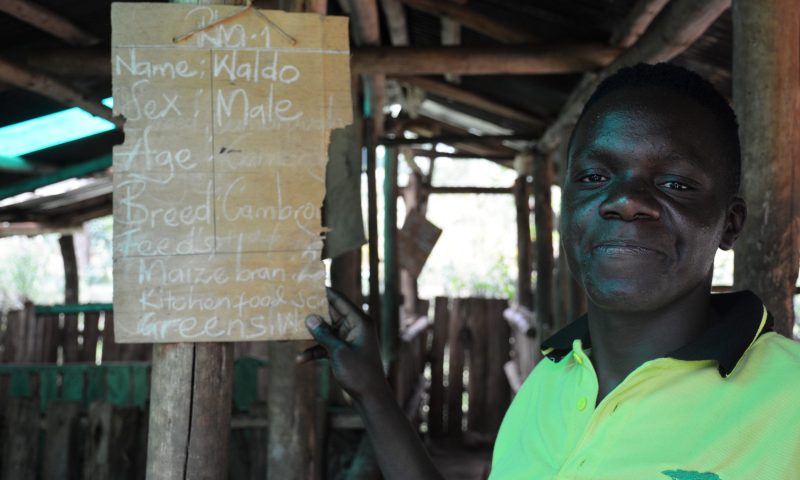 RM:1
Name; Waldo
Sex; Male
Age;
Breed: Cambrog
Feed's
Maize bran
Kitchen food
Greens